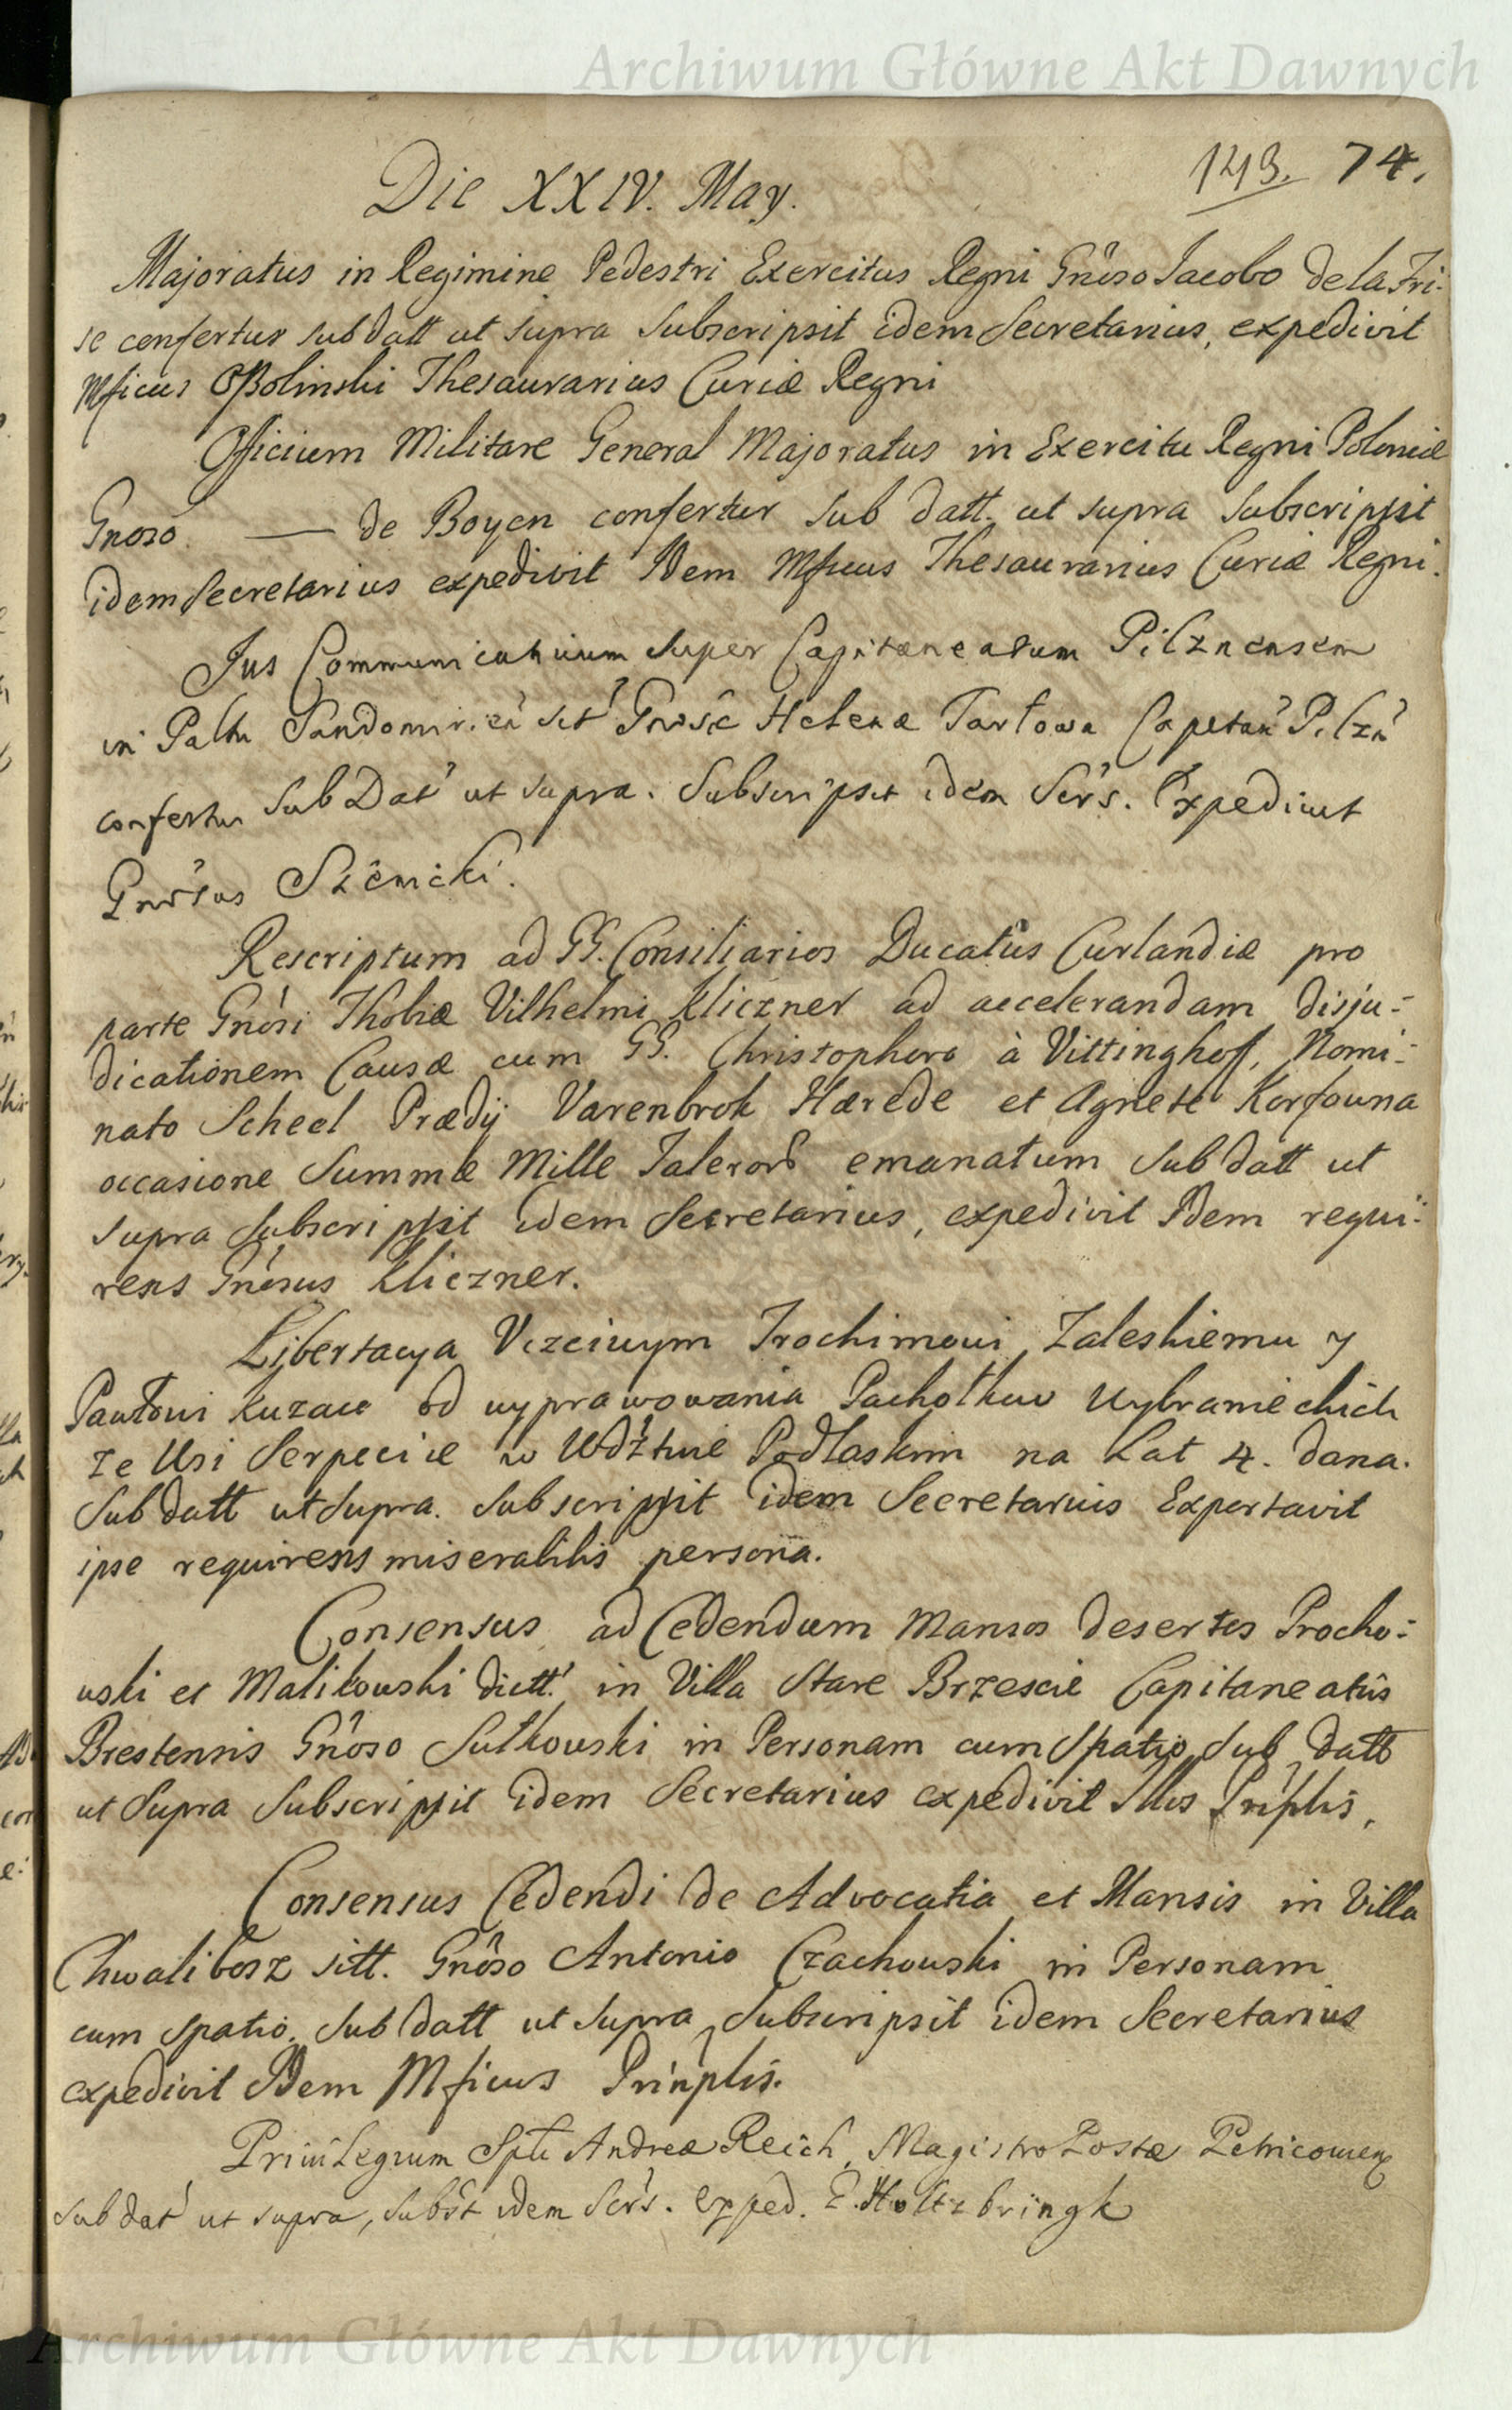 Archiwum Główne Akt Dawnych
143. 74.
Die XXIV. May.
Majoratus in Regimine Pedestri Exercitus Regni Gnõso Jacobo de la Fri-
se confertur sub datt ut supra subscripsit idem Secretarius, expedivit
Mficus Oßolinski Thesaurarius Curiæ Regni
Officium Militare General Majoratus in Exercitu Regni Poloniæ
Gnoso — de Boyen confertur sub datt. ut supra subscripsit
idem Secretarius expedivit Idem Mficus Thesaurarius Curiæ Regni.
Jus Communicativum super Capitaneatum Pilznensem
in Paltu Sandomirien sit Gnosæ Helenæ Tarłowa Capitan Pilzn
confertur sub Dat ut supra. Subscripsit idem Secrs. Expedivit
Gnosus Sienicki.
Rescriptum ad GG. Consiliarios Ducatûs Curlandiæ pro
parte Gnosi Thobiæ Vilhelmi Kliczner ad accelerandam disju-
dicationem Causæ cum GG. Christophoro à Vittinghoff, Nomi-
nato Scheel Prædij Varenbrok Hærede et Agnete Korfowna
occasione Summæ Mille Taleror emanatum sub datt ut
supra subscripsit idem Secretarius, expedivit Idem requi-
rens Gnosus Kliczner.
Libertacya Vczciwym Trochimowi Zaleskiemu y
Pawłowi Kuzace od wyprawowania Pachołkow Wybranieckich
ze Wsi Serpecice w Wdztwie Podlaskim na Lat 4. dana.
Sub datt ut supra. subscripsit idem Secretarius Exportavit
ipse requirens miserabilis persona.
Consensus ad Cedendum Mansos desertos Procho-
wski et Malikowski dictt. in Villa Stare Brzescie Capitaneatûs
Brestensis Gnôso Sułkowski in Personam cum Spatio sub datt
ut supra subscripsit idem Secretarius expedivit Illus Prîplis.
Consensus Cedendi de Advocatia et Mansis in Villa
Chwalibosz sitt. Gnôso Antonio Czachowski in Personam
cum spatio. sub datt ut supra subscripsit idem Secretarius
expedivit Idem Mficus Prinplis.
Privilegium Spli Andreæ Reich, Magistro Postæ Petricovien
sub dat ut supra, subst idem Secrs. exped. E. Holtzbringk
Archiwum Główne Akt Dawnych